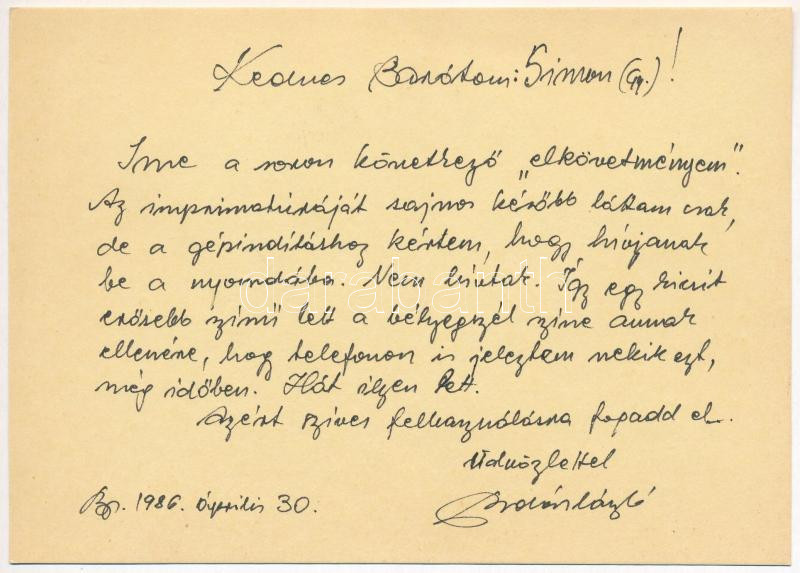 Kedves Barátom: Simon (Gy.)!
Ime a soron következő „elkövetményem”.
Az imprimatúráját sajnos később láttam csak,
de a gépindításhoz kértem, hogy hívjanak
be a nyomdába. Nem hívtak. Így egy kicsit
erősebb színű lett a bélyegszél színe annak
ellenére, hog telefonon is jeleztem nekik ezt,
még időben. Hát ilyen lett.
Azért szíves felhasználásra fogadd el.
Üdvözlettel
Bp. 1986. április 30.
László
darabanth